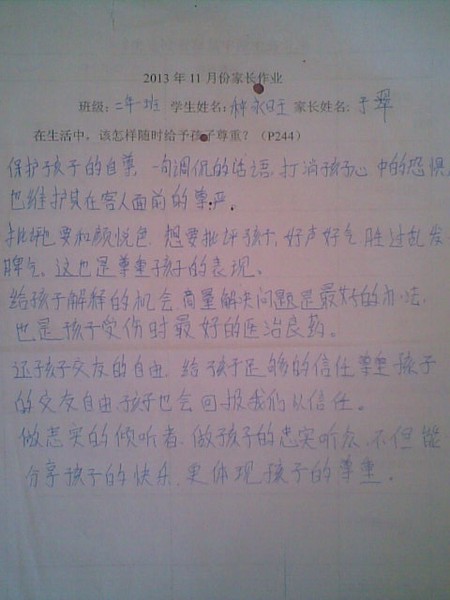 2013年11月份家长作业
班级：二年一班 学生姓名： 家长姓名：于翠
在生活中，该怎样随时给予孩子尊重？（P244）
保护孩子的自尊，一句调侃的话语，打消孩子心中的恐惧，
也维护其在客人面前的尊严。
批评也要和颜悦色，想要批评孩子，好声好气胜过乱发
脾气。这也是尊重孩子的表现。
给孩子解释的机会，商量解决问题是最好的办法，
也是孩子受伤时最好的医治良药。
还孩子交友的自由，给孩子足够的信任，尊重孩子
的交友自由孩子也会回报我们以信任。
做忠实的倾听者，做孩子的忠实听众，不但能
分享孩子的快乐，更体现孩子的尊重。